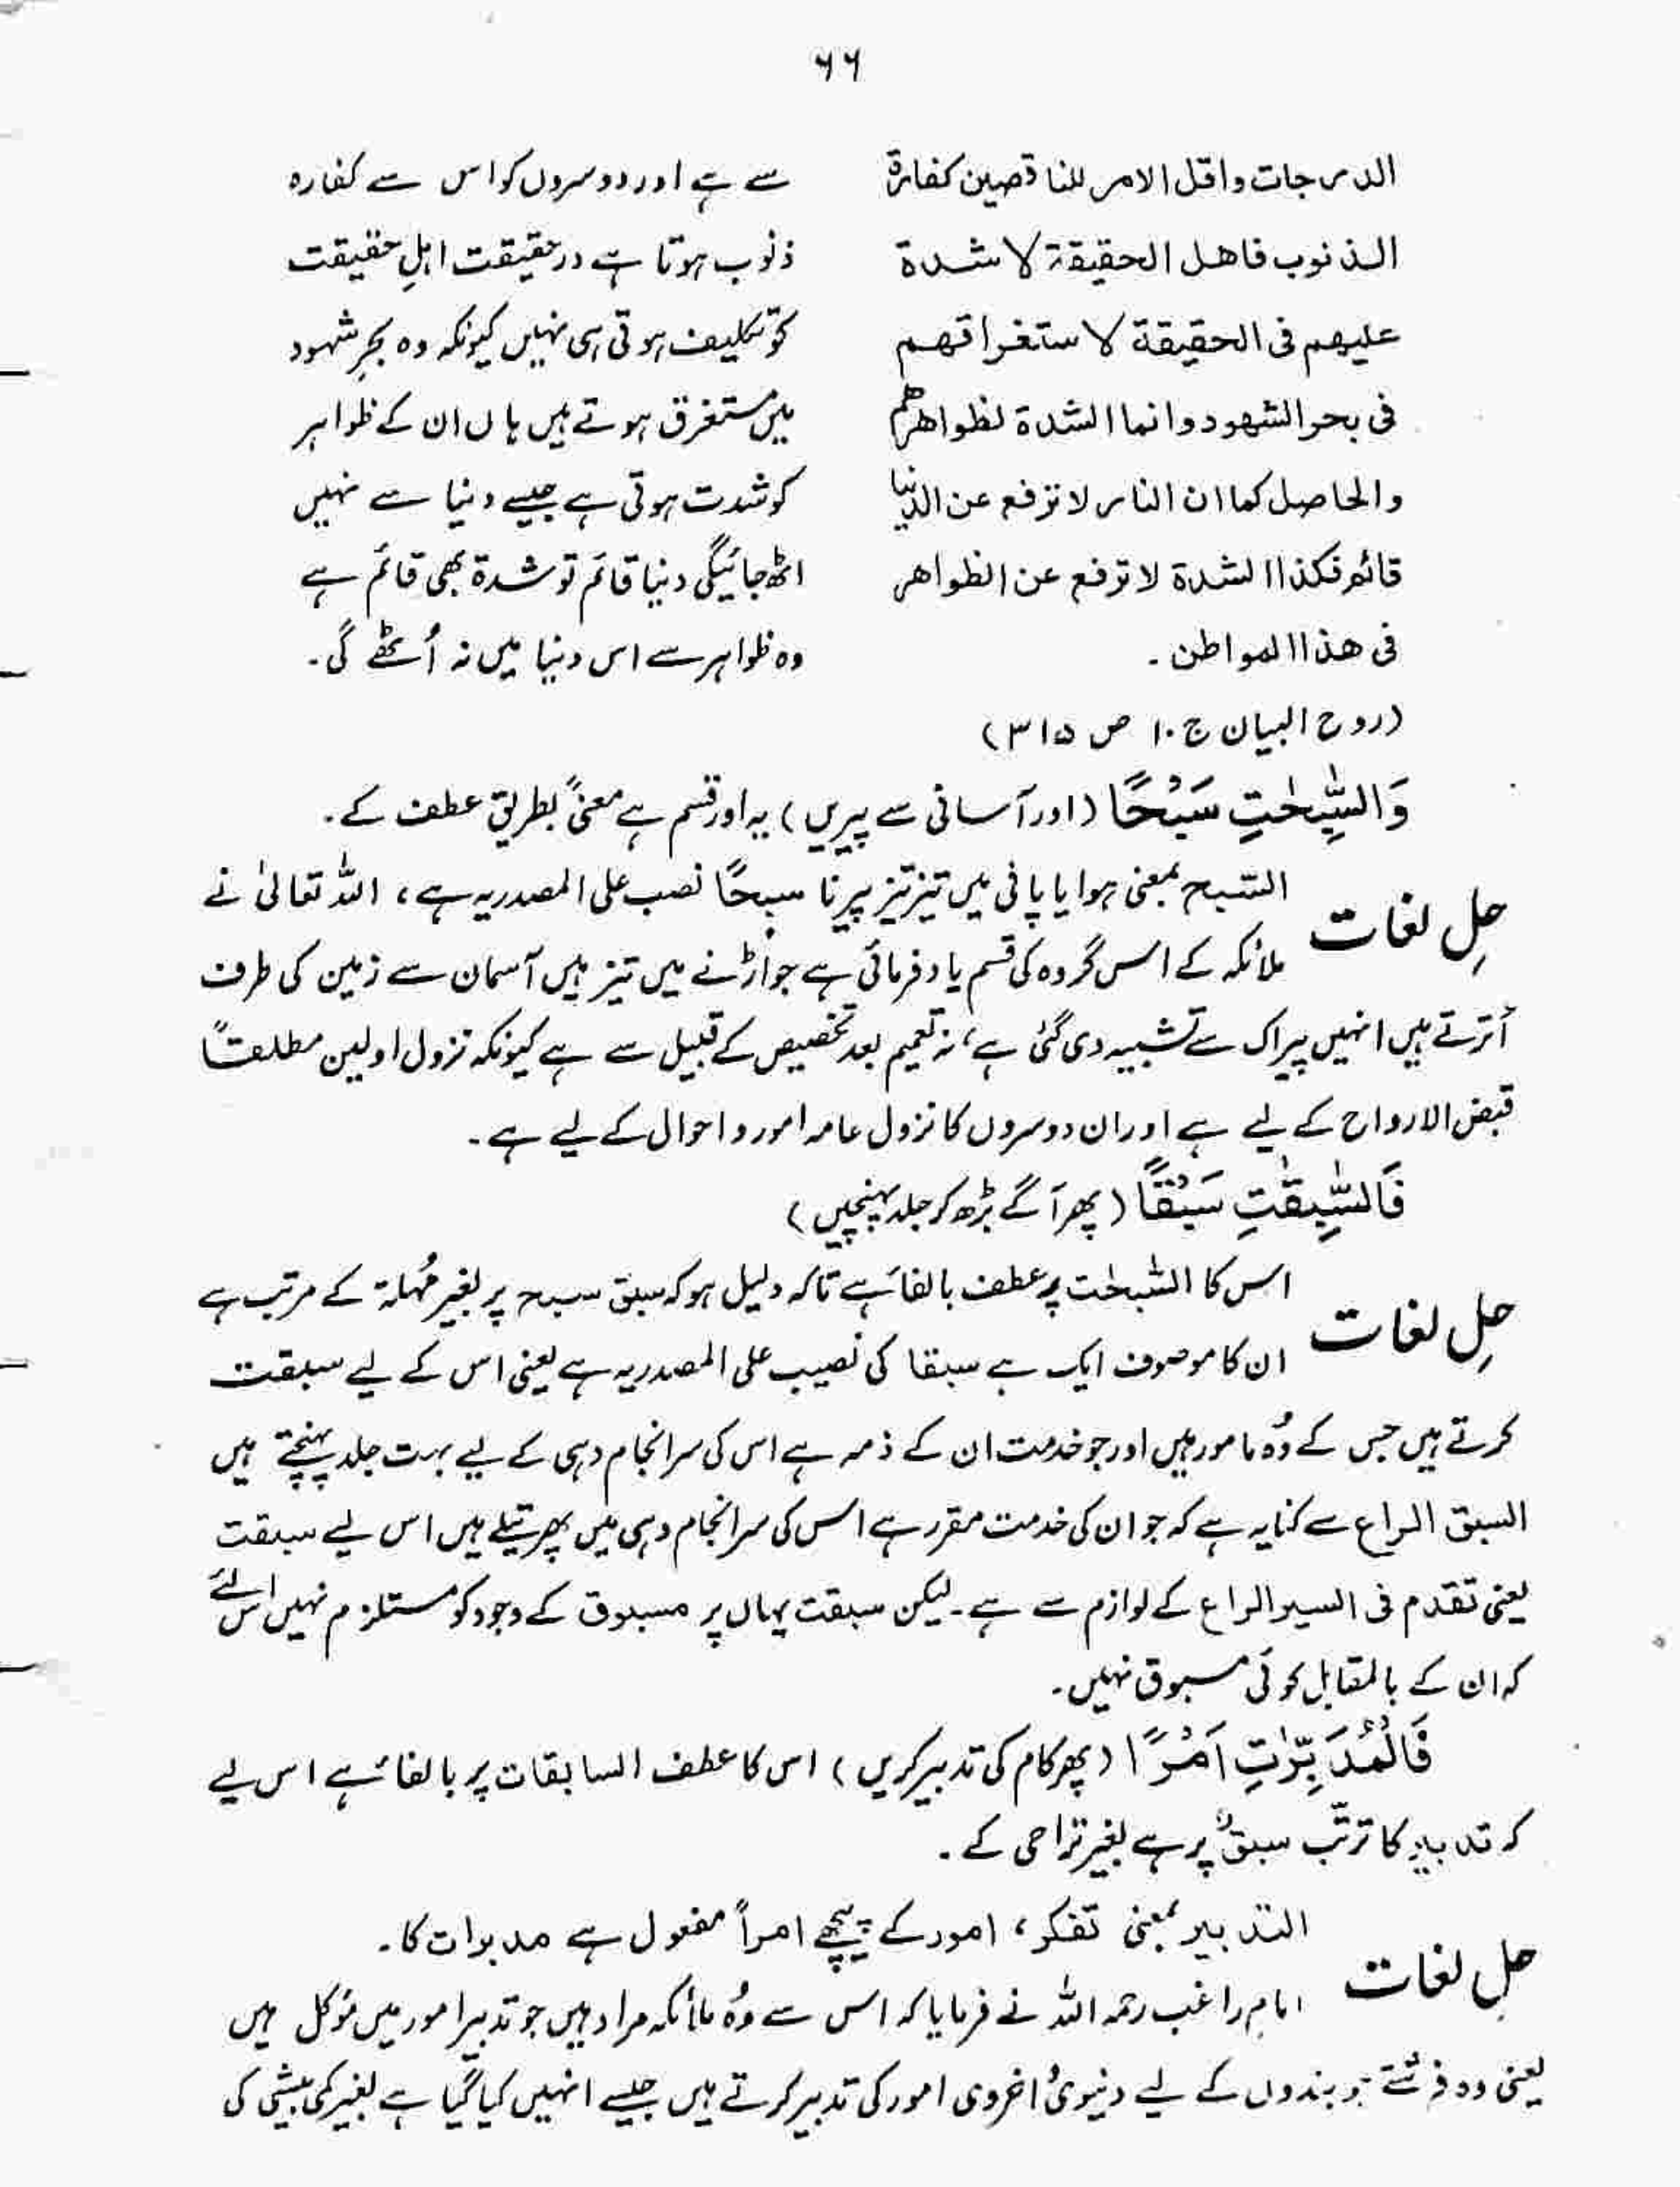 ۶۶
الدرجات واقل الامر للناقصين كفارة
الذنوب فاهل الحقيقة لا شدة
عليهم فى الحقيقة لاستغراقهم
فى بحر الشهود وانما الشدة لظواهرهم
والحاصل كما ان النار لا ترفع عن الدنيا
قائم فكذا الشدة لا ترفع عن الظواهر
فى هذا المواطن ۔
سے ہے اور دوسروں کو اس سے کفارہ
ذنوب ہوتا ہے درحقیقت اہلِ حقیقت
کو تکلیف ہوتی ہی نہیں کیونکہ وہ بحرِ شہود
میں مستغرق ہوتے ہیں ہاں ان کے ظواہر
کو شدت ہوتی ہے جیسے دنیا سے نہیں
اٹھ جائیگی دنیا قائم تو شدۃ بھی قائم ہے
وہ ظواہر سے اس دنیا میں نہ اُٹھے گی۔
(روح البیان ج ۱۰ ص ۳۱۵)
وَالسّٰبِحٰتِ سَبْحًا (اور آسانی سے پیریں) یہ اور قسم ہے معنیً بطریق عطف کے۔
حلِ لغات السَّبح بمعنی ہوا یا پانی میں تیز تیز پیرنا سبحًا نصب علی المصدریہ ہے، اللہ تعالیٰ نے
ملائکہ کے اس گروہ کی قسم یاد فرمائی ہے جو اڑنے میں تیز ہیں آسمان سے زمین کی طرف
اُترتے ہیں انہیں پیراک سے تشبیہ دی گئی ہے، نہ تعمیم بعد تخصیص کے قبیل سے ہے کیونکہ نزول اولین مطلقاً
قبض الارواح کے لیے ہے اور ان دوسروں کا نزول عامہ امور و احوال کے لیے ہے۔
فَالسّٰبِقٰتِ سَبْقًا (پھر آگے بڑھ کر جلد پہنچیں)
حلِ لغات اس کا السّٰبحٰت پر عطف بالفاء ہے تاکہ دلیل ہو کہ سبق سبح پر بغیر مُہلۃ کے مرتب ہے
ان کا موصوف ایک ہے سبقا کی نصیب علی المصدریہ ہے یعنی اس کے لیے سبقت
کرتے ہیں جس کے وُہ مامور ہیں اور جو خدمت ان کے ذمہ ہے اس کی سرانجام دہی کے لیے بہت جلد پہنچتے ہیں
السبق الراع سے کنایہ ہے کہ جو ان کی خدمت مقرر ہے اس کی سرانجام دہی میں پھرتیلے ہیں اس لیے سبقت
یعنی تقدم فی السیر الراع کے لوازم سے ہے۔ لیکن سبقت یہاں پر مسبوق کے وجود کو مستلزم نہیں اس لئے
کہ ان کے بالمقابل کوئی مسبوق نہیں۔
فَالْمُدَبِّرٰتِ اَمْرًا (پھر کام کی تدبیر کریں) اس کا عطف السابقات پر بالفاء ہے اس لیے
کہ تدبیر کا ترتّب سبق پر ہے بغیر تراحی کے۔
حلِ لغات التدبیر بمعنی تفکر، امور کے پیچھے امراً مفعول ہے مدبرات کا۔
امام راغب رحمہ اللہ نے فرمایا کہ اس سے وُہ ملائکہ مراد ہیں جو تدبیر امور میں مؤکل ہیں
یعنی وہ فرشتے جو بندوں کے لیے دنیوی اُخروی امور کی تدبیر کرتے ہیں جیسے انہیں کیا گیا ہے بغیر کمی بیشی کی